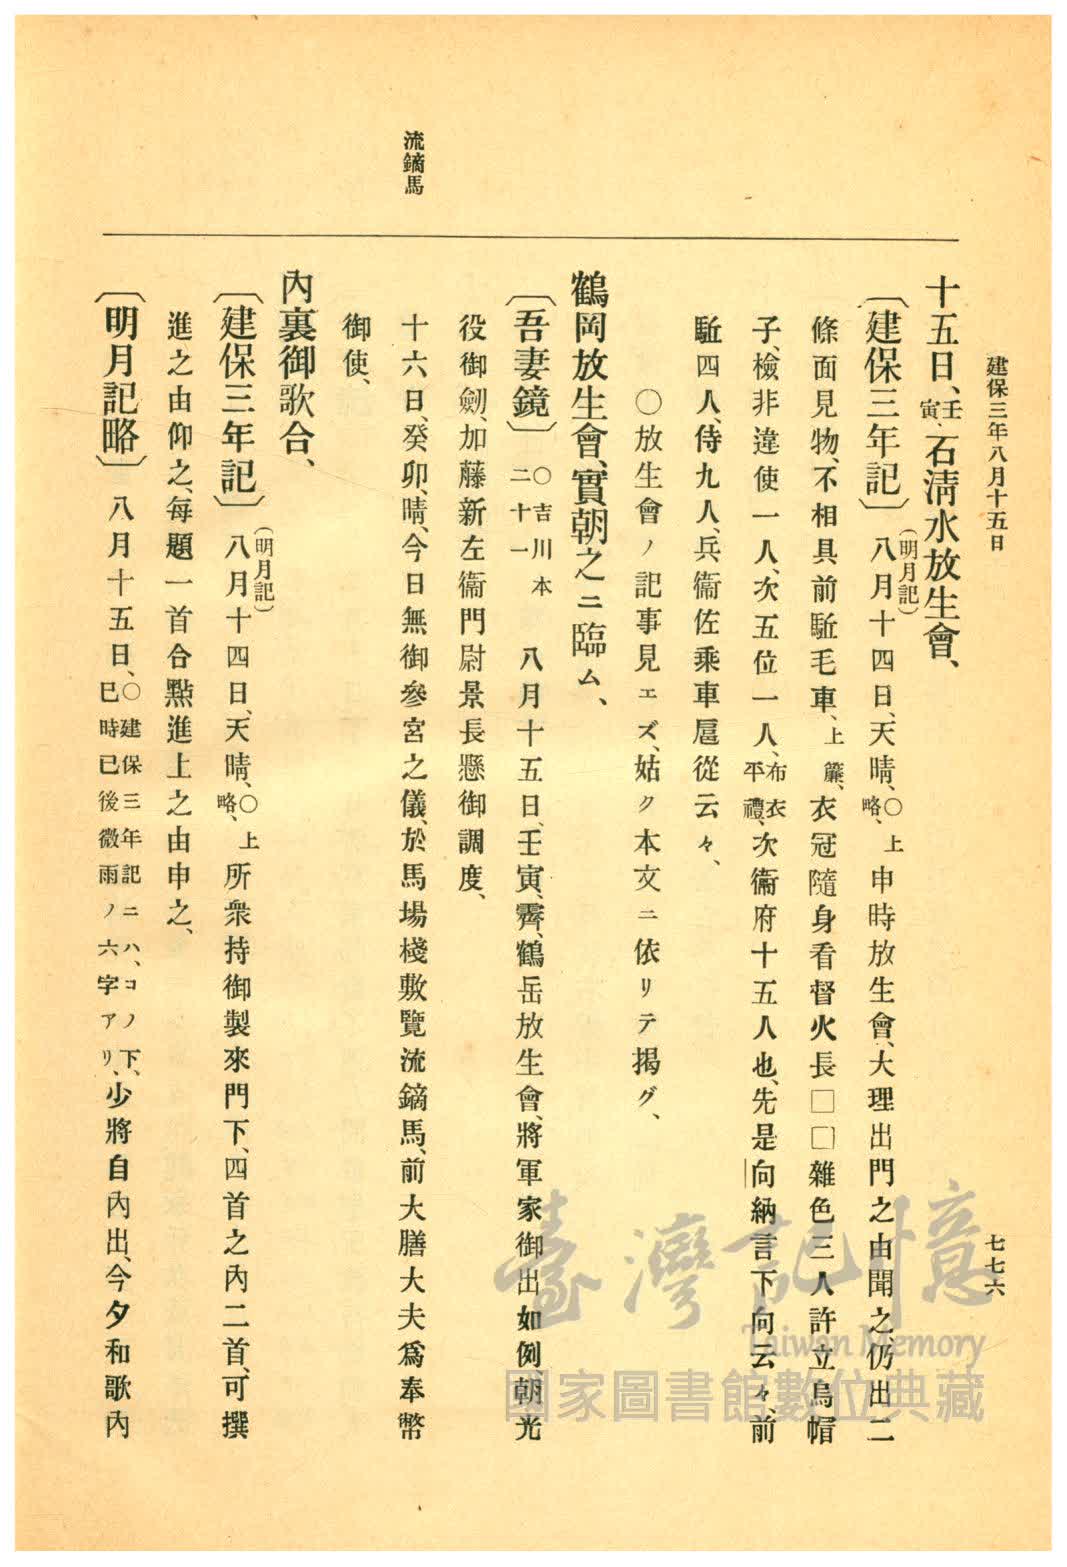 建保三年八月十五日
七七六
十五日、壬寅、石淸水放生會、
〔建保三年記〕(明月記)八月十四日、天晴、○上略、申時放生會、大理出門之由聞之、仍出二
條面見物、不相具前駈毛車、上簾、衣冠隨身看督火長□□雜色三人許立烏帽
子、檢非違使一人、次五位一人、布衣平禮、次衞府十五人也、先是向納言下向云々、前
駈四人、侍九人、兵衞佐乘車扈從云々、
○放生會ノ記事見エズ、姑ク本文ニ依リテ揭グ、
鶴岡放生會、實朝之ニ臨ム、
〔吾妻鏡〕○吉川本二十一 八月十五日、壬寅、霽、鶴岳放生會、將軍家御出如例、朝光
役御劒、加藤新左衞門尉景長懸御調度、
流鏑馬
十六日、癸卯、晴、今日無御參宮之儀、於馬場棧敷覽流鏑馬、前大膳大夫爲奉幣
御使、
內裏御歌合、
〔建保三年記〕(明月記)八月十四日、天晴、○上略、所衆持御製來門下、四首之內二首、可撰
進之由仰之、每題一首合點進上之由申之、
〔明月記略〕八月十五日、○建保三年記ニハ、コノ下、巳時已後微雨ノ六字アリ、少將自內出、今夕和歌內
臺灣記憶
Taiwan Memory
國家圖書館數位典藏